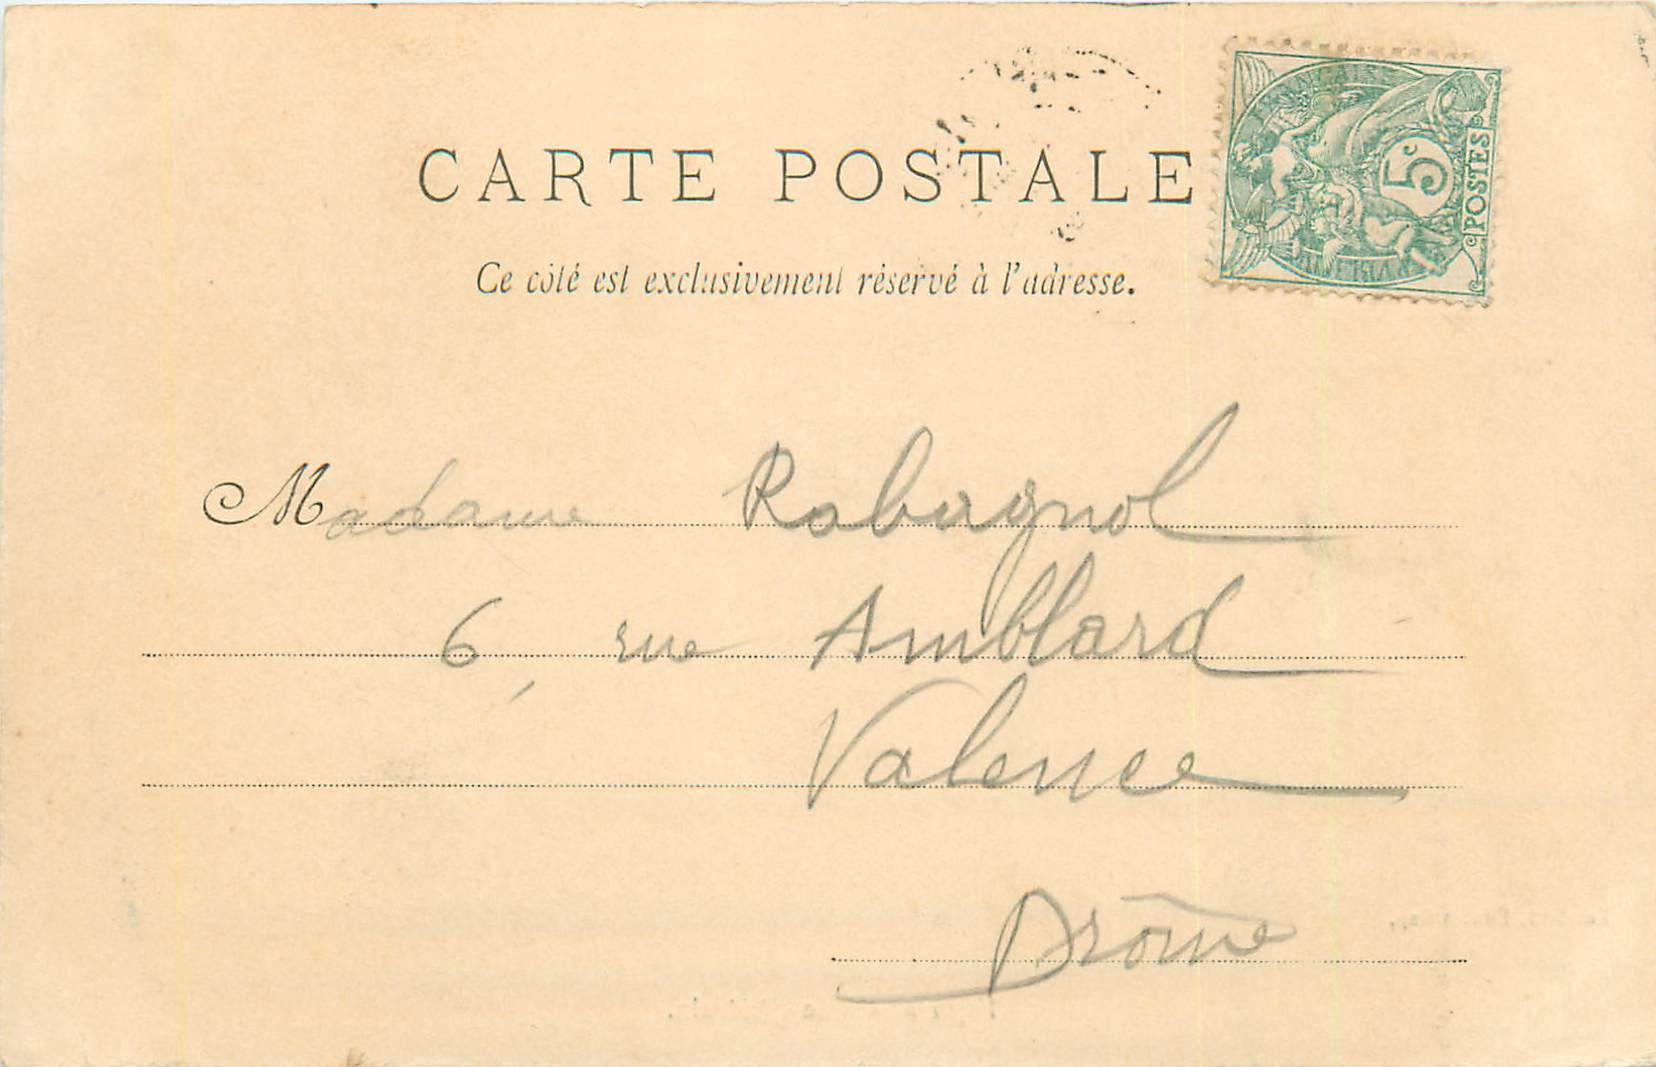 CARTE POSTALE
Ce côté est exclusivement réservé à l'adresse.
5c
POSTES
Madame Rabagnol
6, rue Amblard
Valence
Drôme